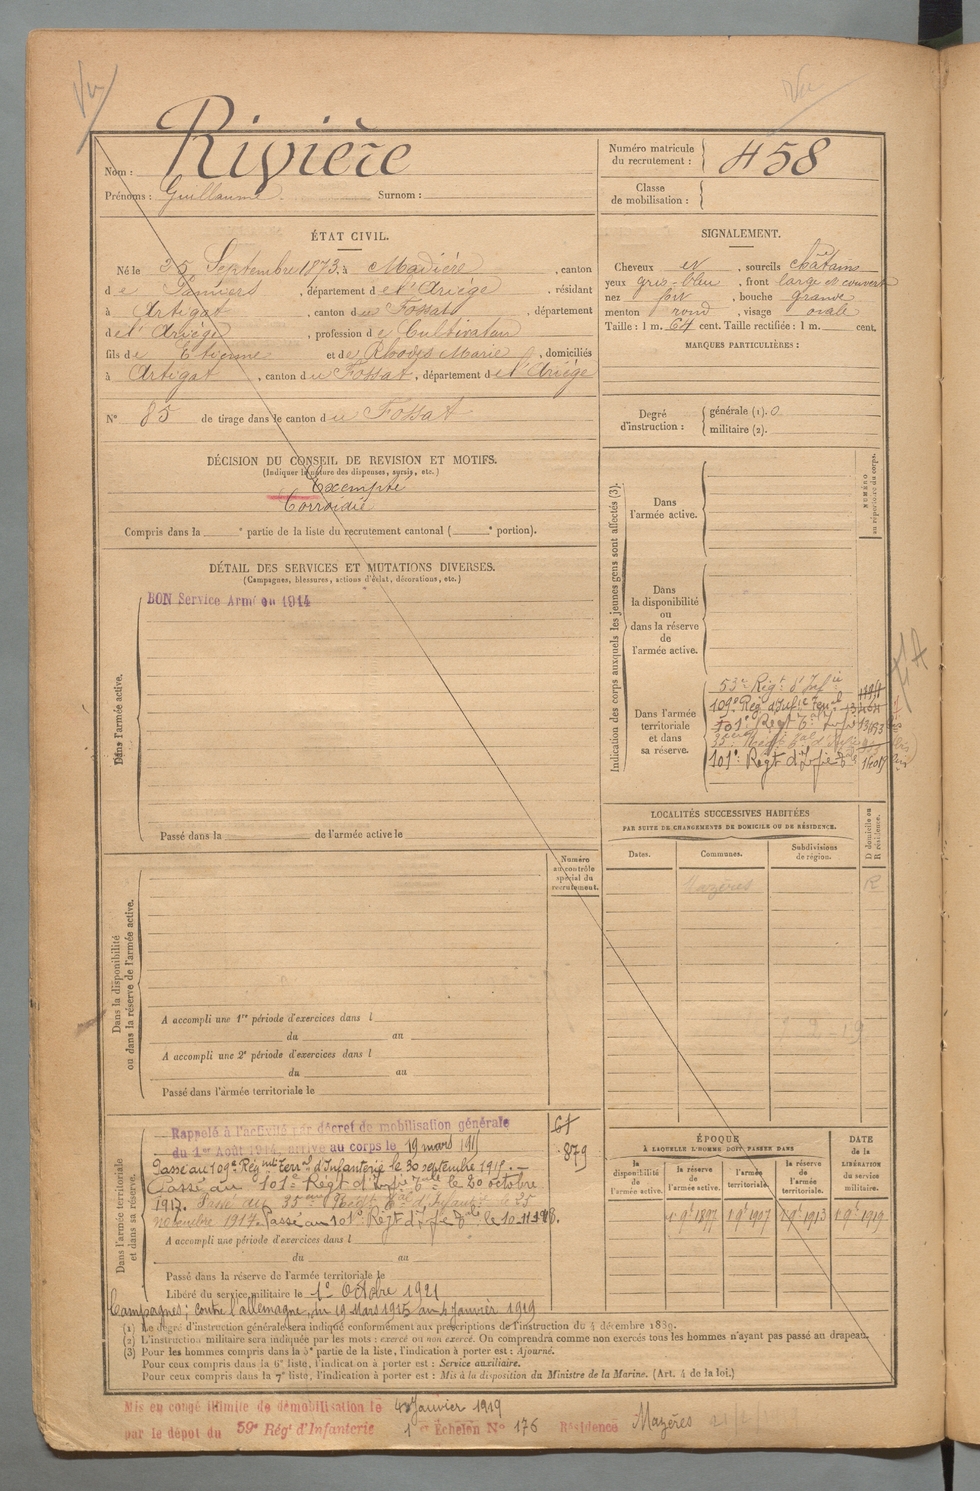 Vu
Vu
Nom : Rivière
Prénoms : Guillaume. Surnom :
Numéro matricule du recrutement : 458
Classe de mobilisation :
ÉTAT CIVIL.
Né le 25 Septembre 1873, à Madière, canton
de Pamiers, département de l'Ariège, résidant
à Artigat, canton du Fossat, département
de l'Ariège, profession de Cultivateur
fils de Etienne et de Rhodes Marie, domiciliés
à Artigat, canton du Fossat, département de l'Ariège
N° 85 de tirage dans le canton du Fossat
SIGNALEMENT.
Cheveux et, sourcils châtains
yeux gris-bleu, front large et couvert
nez fort, bouche grande
menton rond, visage ovale
Taille : 1 m. 64 cent. Taille rectifiée : 1 m. cent.
MARQUES PARTICULIÈRES :
Degré d'instruction : générale (1). 0
militaire (2).
DÉCISION DU CONSEIL DE REVISION ET MOTIFS.
(Indiquer la nature des dispenses, sursis, etc.)
Exempté
Compris dans la e partie de la liste du recrutement cantonal ( e portion).
DÉTAIL DES SERVICES ET MUTATIONS DIVERSES.
(Campagnes, blessures, actions d'éclat, décorations, etc.)
Dans l'armée active.
BON Service Armé en 1914
Passé dans la de l'armée active le
Indication des corps auxquels les jeunes gens sont affectés (3).
NUMÉRO au répertoire du corps.
Dans l'armée active.
Dans la disponibilité ou dans la réserve de l'armée active.
Dans l'armée territoriale et dans sa réserve.
53e Régt d'Infie
109e Rég. d'Infie Terr.l
101e Régt Tal Infie 13193
35e Régt Tal d'Inf
101e Régt d'Infie Tale 14019
LOCALITÉS SUCCESSIVES HABITÉES
PAR SUITE DE CHANGEMENTS DE DOMICILE OU DE RÉSIDENCE.
Dates. Communes. Subdivisions de région. D domicile ou R résidence.
Mazères R
Numéro au contrôle spécial du recrutement.
Dans la disponibilité ou dans la réserve de l'armée active.
A accompli une 1re période d'exercices dans l
du au
A accompli une 2e période d'exercices dans l
du au
Passé dans l'armée territoriale le
Dans l'armée territoriale et dans sa réserve.
Rappelé à l'activité par décret de mobilisation générale
du 1er Août 1914, arrivé au corps le 19 mars 1915
Passé au 109e Régiment Terr.al d'Infanterie le 30 septembre 1915.
Passé au 101e Régt d'Infie Tale le 20 octobre
1917. Passé au 35eme Régt Tal d'Infant. le 25
novembre 1917. Passé au 101e Régt d'Infie Tale le 10-11-1918.
879
A accompli une période d'exercices dans l
du au
Passé dans la réserve de l'armée territoriale le
Libéré du service militaire le 1er Octobre 1921
Campagnes ; contre l'allemagne, du 19 Mars 1915 au 4 Janvier 1919
ÉPOQUE
À LAQUELLE L'HOMME DOIT PASSER DANS
DATE de la LIBÉRATION du service militaire.
la disponibilité de l'armée active. la réserve de l'armée active. l'armée territoriale. la réserve de l'armée territoriale.
1 9e 1897 1 9e 1907 1 9e 1913 1 9e 1919
(1) Le degré d'instruction générale sera indiqué conformément aux prescriptions de l'instruction du 4 décembre 1889.
(2) L'instruction militaire sera indiquée par les mots : exercé ou non exercé. On comprendra comme non exercés tous les hommes n'ayant pas passé au drapeau.
(3) Pour les hommes compris dans la 5e partie de la liste, l'indication à porter est : Ajourné.
Pour ceux compris dans la 6e liste, l'indication à porter est : Service auxiliaire.
Pour ceux compris dans la 7e liste, l'indication à porter est : Mis à la disposition du Ministre de la Marine. (Art. 4 de la loi.)
Mis en congé illimité de démobilisation le 4 Janvier 1919
par le dépôt du 59e Régt d'Infanterie 1er Échelon N° 176 Résidence Mazères